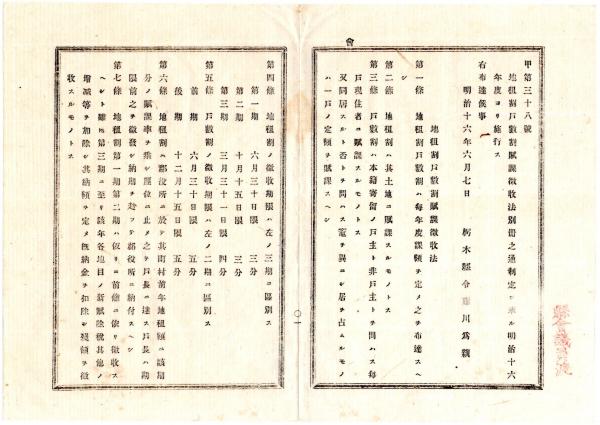 甲第三十八號
地租割戸數割賦課徴收法別冊之通制定シ來ル明治十六
年度ヨリ施行ス
右布達候事
明治十六年六月七日 栃木縣令藤川爲親
地租割戸數割賦課徴收法
第一條 地租割戸數割ハ毎年度課額ヲ定メ之ヲ布達スヘ
シ
第二條 地租割ハ其土地ニ賦課スルモノトス
第三條 戸數割ハ本籍寄留ノ戸主ト非戸主トヲ問ハス毎
戸現住者ニ賦課スルモノトス
又同居スルト否トヲ問ハス竈ヲ異ニシ居ヲ占ムルモノ
ハ一戸ノ定額ヲ賦課スヘシ
第四條 地租割ノ徴收期限ハ左ノ三期ニ區別ス
第一期 六月三十日限 三分
第二期 十月十五日限 三分
第三期 三月三十一日限 四分
第五條 戸數割ノ徴收期限ハ左ノ二期ニ區別ス
前期 六月三十日限 五分
後期 十二月十五日限 五分
第六條 地租割ハ郡役所ニ於テ其町村前年地租額ニ該期
分ノ賦課率ヲ乘シ厘位ニ止メ之ヲ戸長ニ達ス戸長ハ期
限前之ヲ徴發シ納期ヲ
郡役所ニ納付スヘシ
第七條 地租割第一期第二期ハ仮リニ前條ニ依リ徴收ス
ヘシト雖
第三期ニ至リ該年各地目ノ新賦除税其他ノ
増減等ヲ加除シ其納額ヲ定メ既納金ヲ扣除シ殘額ヲ徴
收スルモノトス
〇一